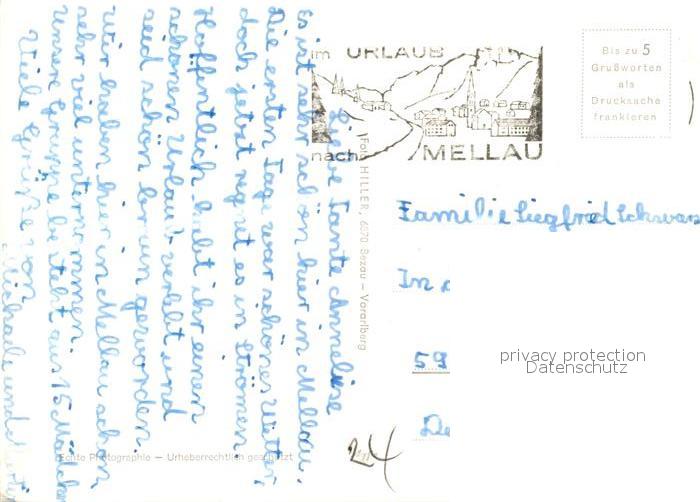 Liebe Tante Anneliese
Es ist sehr schön hier in Mellau.
Die ersten Tage war schönes Wetter,
doch jetzt regnet es in Strömen
Hoffentlich habt ihr einen
schönen Urlaub verlebt und
seid schön braun geworden.
Wir haben hier in Mellau schon
sehr viel unternommen.
Unsere Gruppe besteht aus 15 Mädchen
Viele Grüße von
Michaele und
im URLAUB
nach MELLAU
Bis zu 5
Grußworten
als
Drucksache
frankieren
Foto HILLER, 6870 Bezau — Vorarlberg
Familie Siegfried Schwarz
In
59
privacy protection
Datenschutz
24
Echte Photographie — Urheberrechtlich geschützt